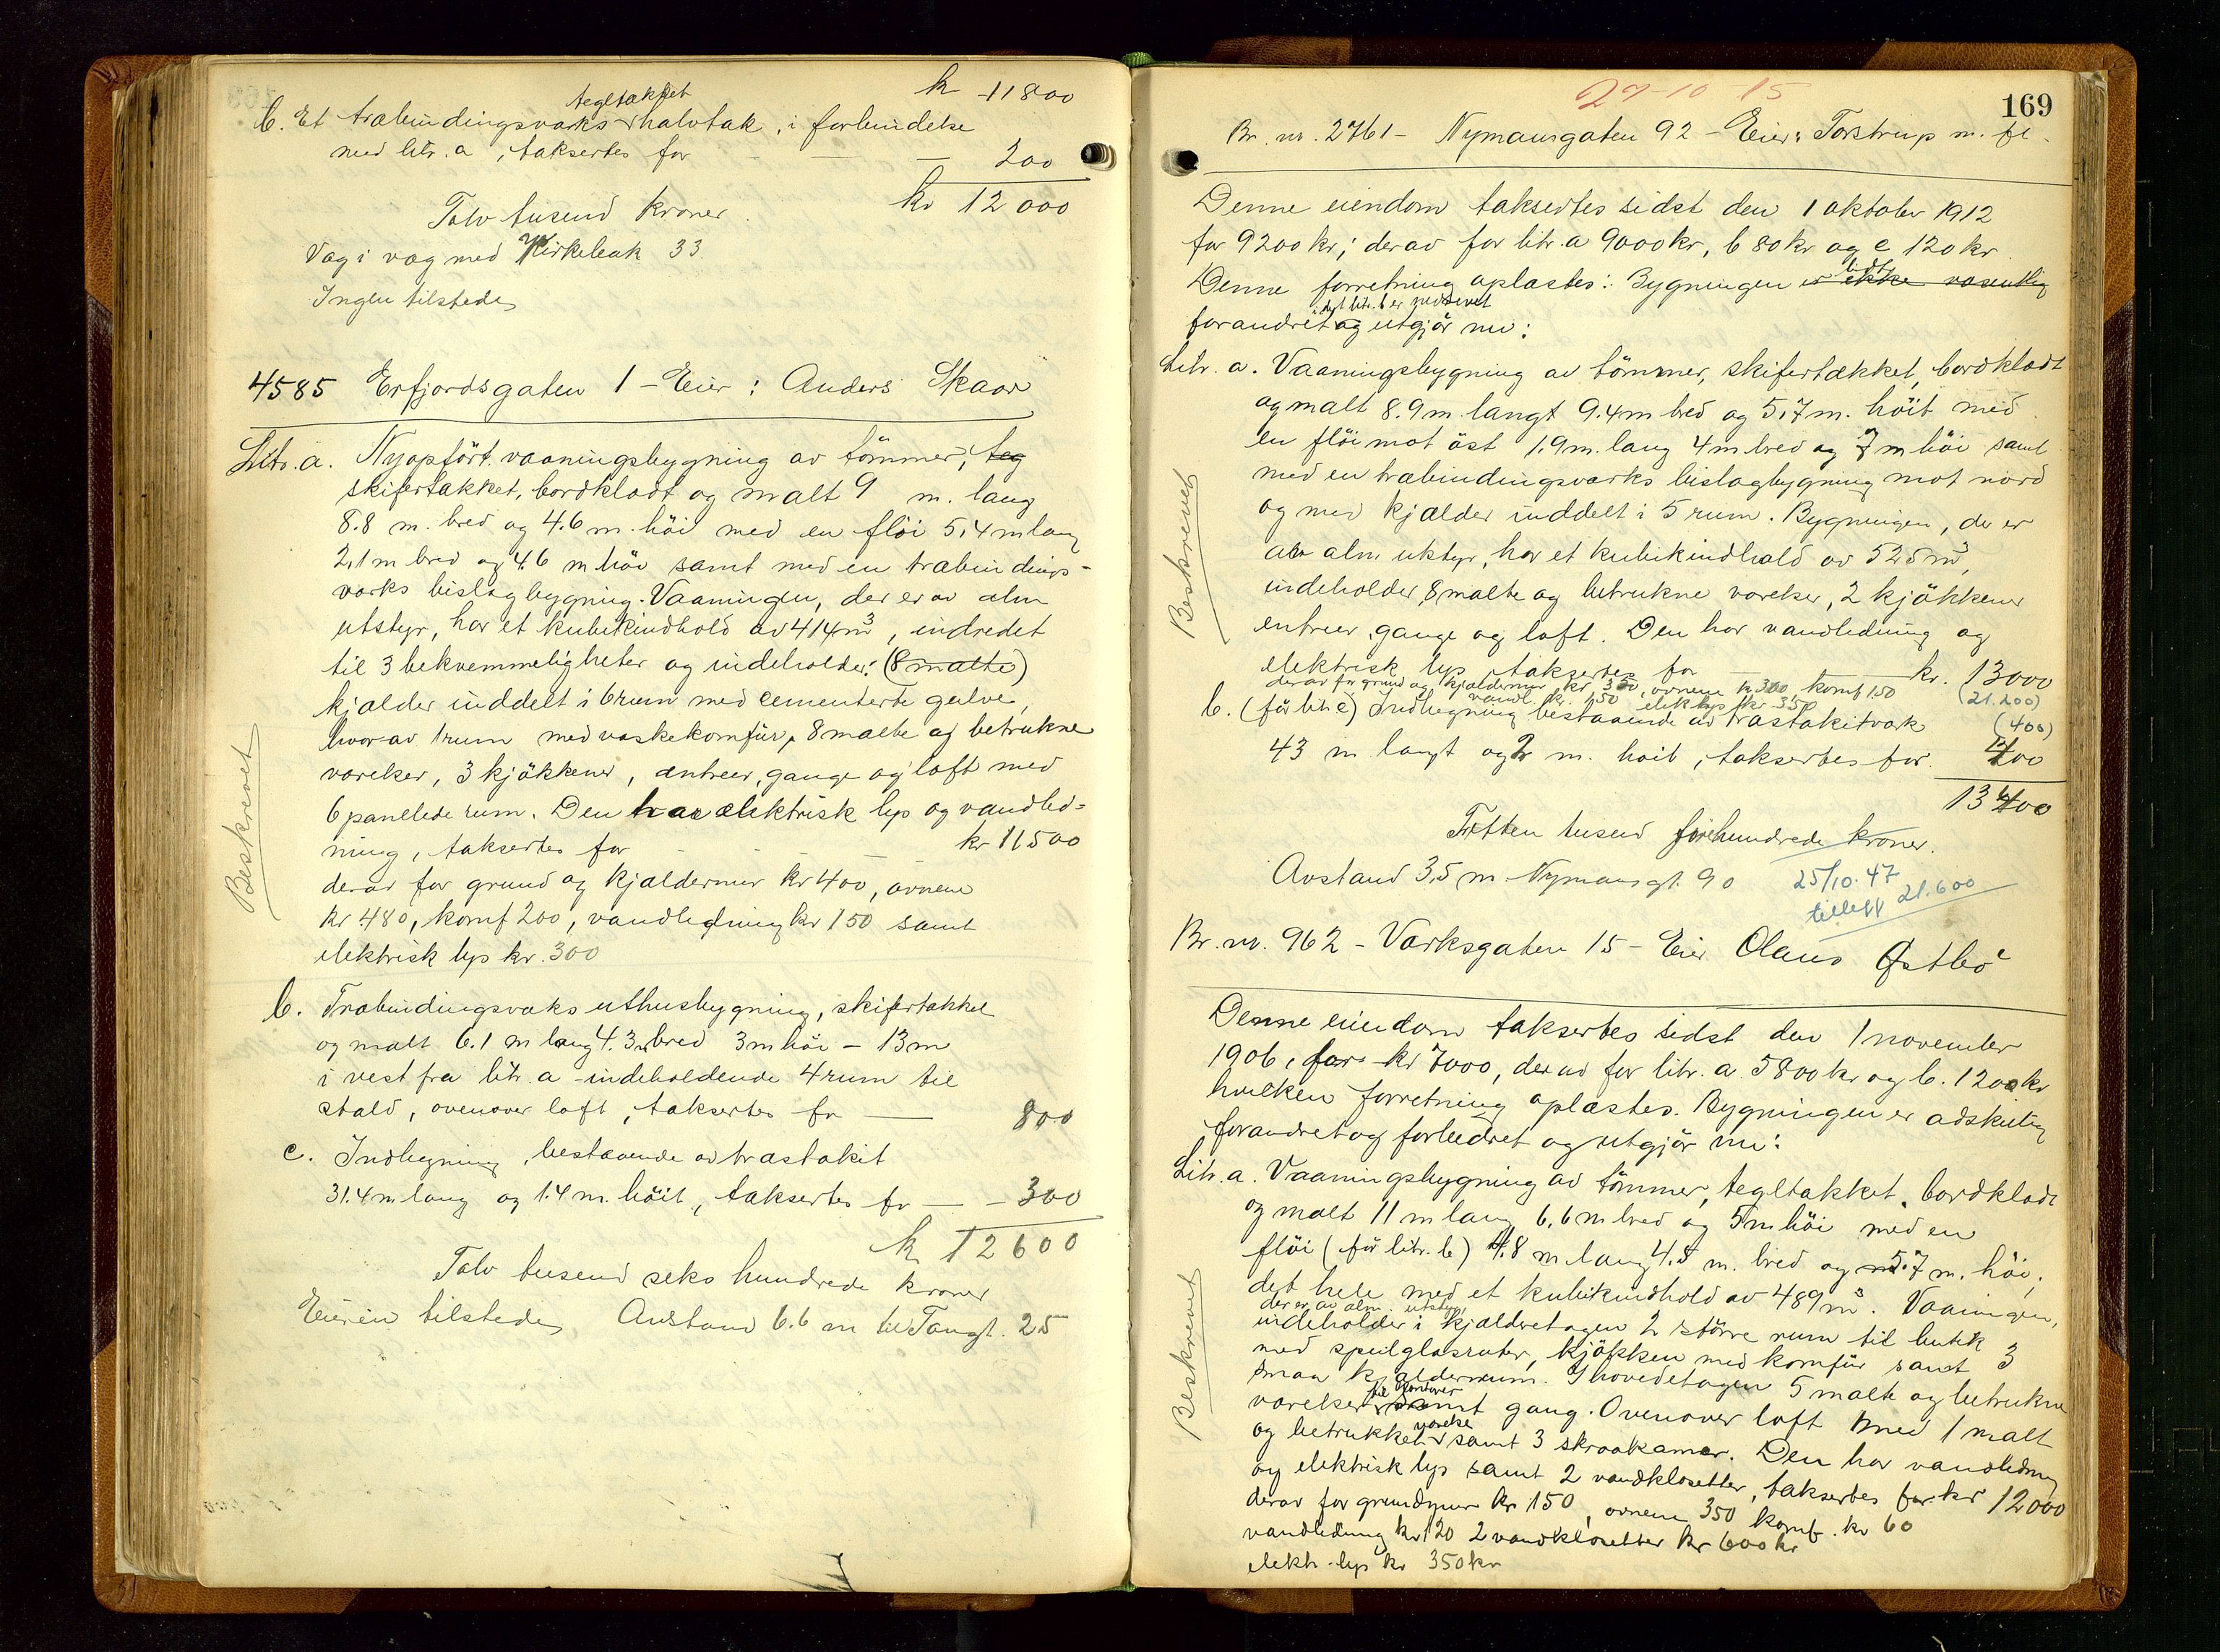 kr 11800
tegltækket
b. Et træbindingsværks halvtak, i forbindelse
med litr. a, taksertes for — — 200
kr 12000
Tolv tusend kroner.
Væg i væg med Kirkebak 33.
Ingen tilstede
4585 Erfjordsgaten 1 – Eier: Anders Skaar
Litr. a. Nyopført vaaningsbygning av tømmer, teg
skifertækket, bordklædt og malt 9 m. lang
8.8 m. bred og 4.6 m. höi med en flöi 5,4 m lang
2,1 m bred og 4.6 m höi samt med en træbindings-
værks bislagbygning. Vaaningen, der er av alm
utstyr, har et kubikindhold av 414 m³, indredet
til 3 bekvemmeligheter og indeholder: (8 malte)
kjælder inddelt i 6 rum med cementerte gulve,
hvorav 1 rum med vaskekomfür, 8 malte og betrukne
værelser, 3 kjökkener, entreer, gange og loft med
6 panelede rum. Den har elektrisk lys og vandled-
ning, taksertes for — — — kr 11500
derav for grund og kjældermur kr 400, ovnene
kr. 480, komf 200, vandledning kr 150 samt
elektrisk lys kr. 300
Beskrevet
b. Træbindingsværks uthusbygning, skifertækket
og malt 6.1 m lang 4.3 m bred 3 m höi – 13 m
i vest fra litr. a – indeholdende 4 rum til
stald, ovenover loft, taksertes for — 800
c. Indhegning, bestaaende av træstakit
31.4 m lang og 1.4 m. höit, taksertes for — – 300
kr 12600
Tolv tusend seks hundrede kroner
Eieren tilstede, Avstand 6.6 m til Tangt. 25
27-10 15
169
Br. nr. 2761 – Nymansgaten 92 – Eier: Torstrup m. fl.
Denne eiendom taksertes sidst den 1 oktober 1912
for 9200 kr; derav for litr. a 9000 kr, b 80 kr og c 120 kr.
Denne forretning oplæstes: Bygningen er ikke væsentlig
litt
idet litr. b er nedrevet
forandret og utgjör nu:
Litr. a. Vaaningsbygning av tömmer, skifertækket, bordklædt
og malt 8.9 m. langt 9.4 m bred og 5,7 m. höit med
en flöi mot öst 1.9 m. lang 4 m bred og 7 m höi samt
med en træbindingsværks bislagbygning mot nord
og med kjælder inddelt i 5 rum. Bygningen, der er
av alm. utstyr, har et kubikindhold av 525 m³,
indeholder 8 malte og betrukne værelser, 2 kjökkener
entreer, gange og loft. Den har vandledning og
elektrisk lys, taksertes for — kr. 13000
derav for grund og kjældermur kr 350, ovnene kr 300, komf 150
(21.200)
vandl. kr. 150 elek lys kr 350
b. (för litr c) Indhegning bestaaende av træstakitværk (400)
43 m langt og 2 m. höit, taksertes for 400
13400
Tretten tusend firehundrede kroner.
Avstand 3,5 m Nymansgt. 90
25/10. 47
tillegg 21.600
Beskrevet
Br. nr. 962 – Værksgaten 15 – Eier Olaus Østbö
Denne eiendom taksertes sidst den 1 november
1906, for kr 7000, derav for litr. a 5800 kr og b. 1200 kr
hvilken forretning oplæstes. Bygningen er adskillig
forandret og forbedret og utgjör nu:
Litr. a. Vaaningsbygning av tömmer, tegltækket, bordklædt
og malt 11 m lang 6,6 m bred og 5 m höi med en
flöi (för litr. b) 4.8 m lang 4.5 m. bred og 5.7 m. höi,
det hele med et kubikindhold av 489 m³. Vaaningen,
der er av alm. utstyr,
indeholder i kjælderetagen 2 större rum til butik
med speilglasruter, kjökken med komfür samt 3
smaa kjælderrum. I hovedetagen 5 malte og betrukne
til kontorer
værelser samt gang. Ovenover loft med 1 malt
værelse
og betrukket samt 3 skraakamer. Den har vandledning
og elektrisk lys samt 2 vandklosetter, taksertes for kr 12000
derav for grundmur kr 150, ovnene 350 komf. kr 60
vandledning kr 120 2 vandklosetter kr 600 kr
elekt. lys kr 350 kr
Beskrevet